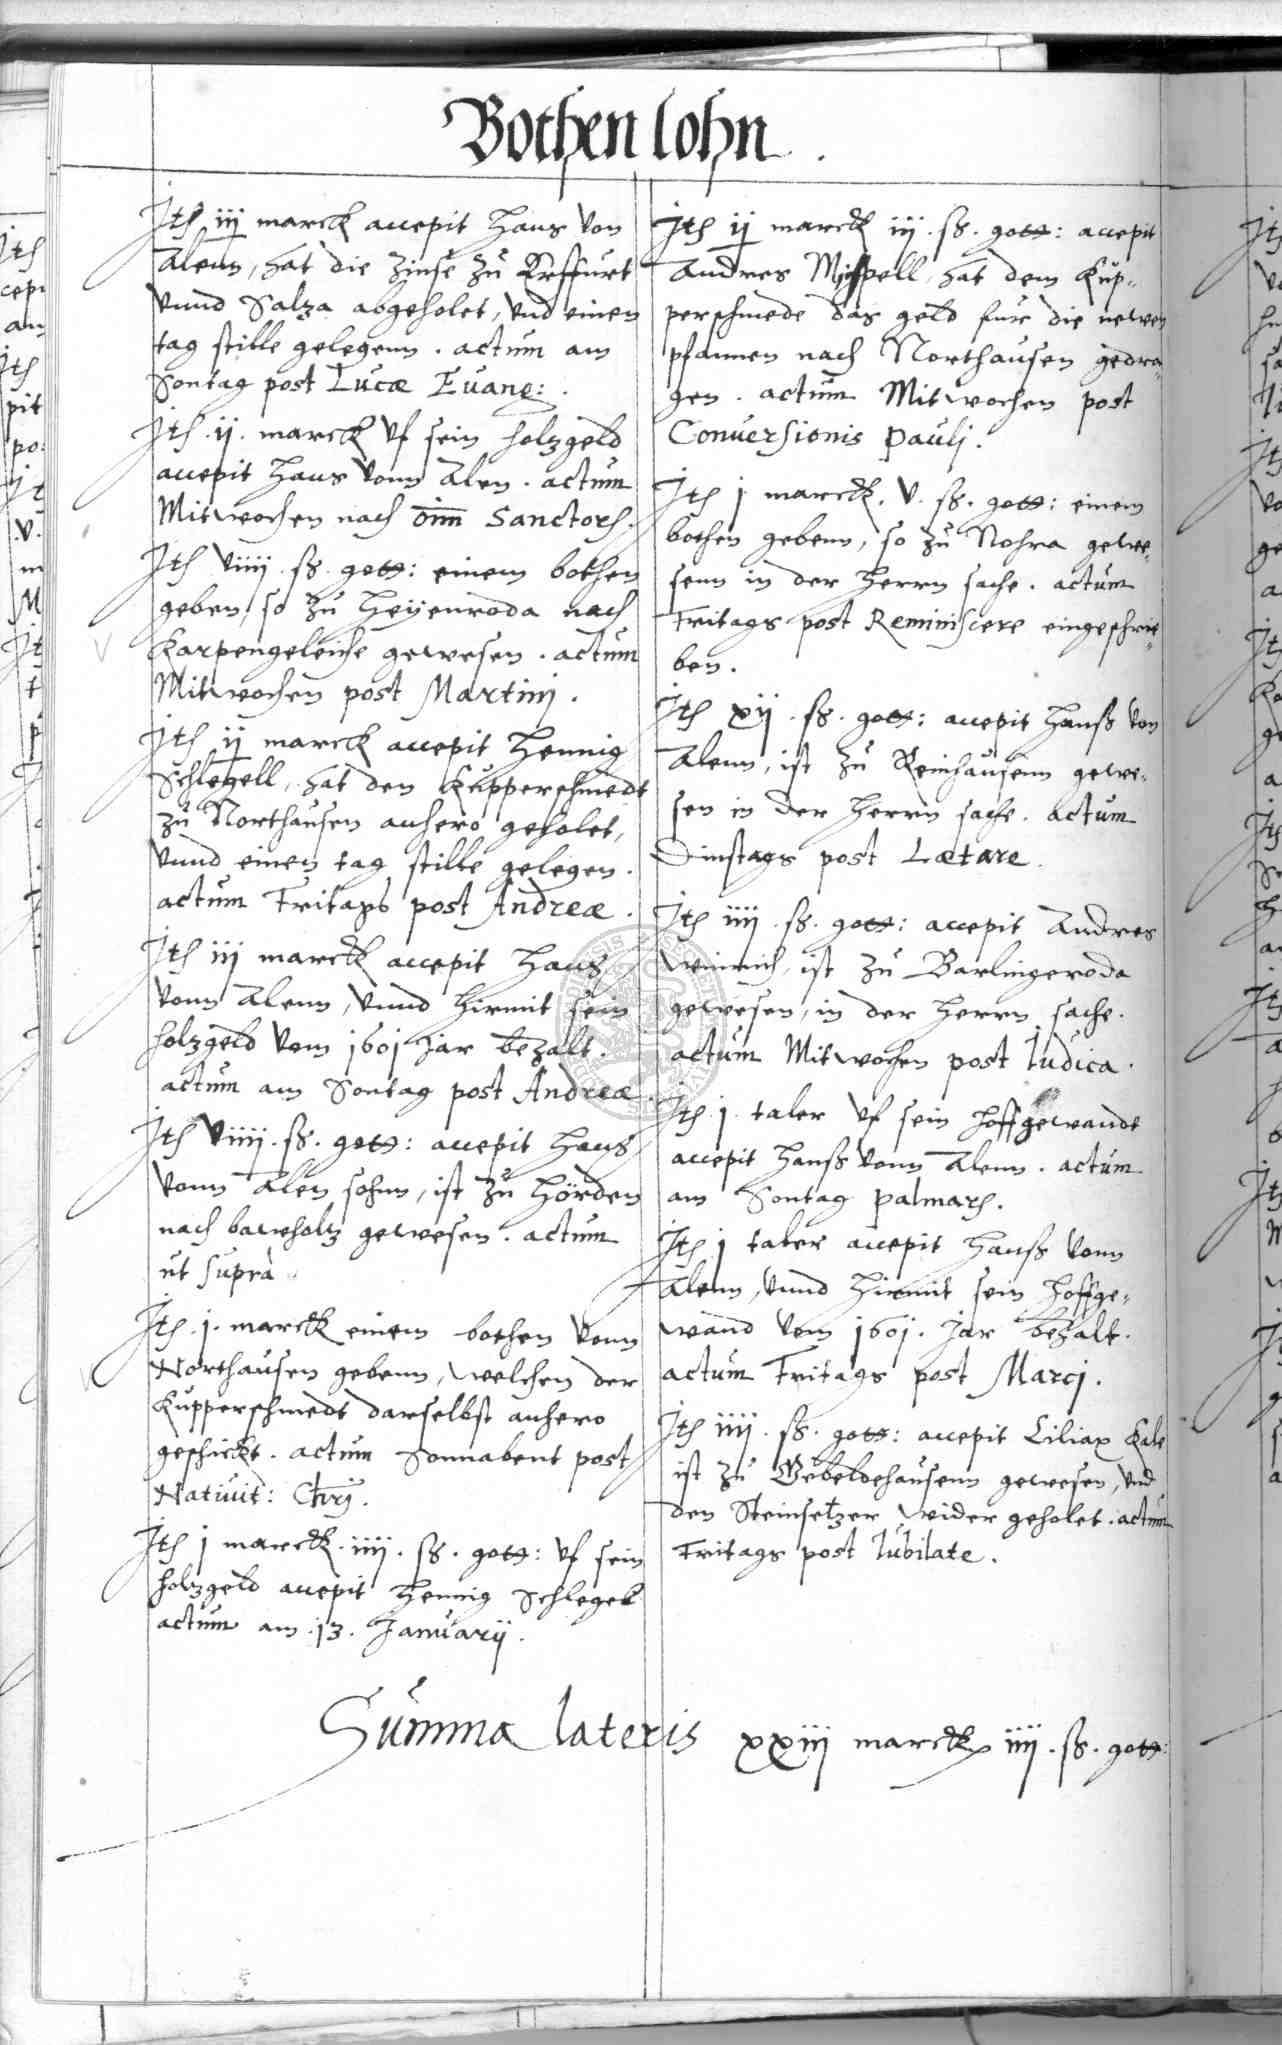 Bothen lohn.
Jtē iij marck accepit Hans von
Alenn, hat die Zinse zu Erffurt
vnnd Salza abgeholet, vnd einen
tag stille gelegenn. actum am
Sontag post Lucæ Euang:.
Jtē .ij. marck vf sein holzgeld
accepit Hans vonn Alen. actum
Mitwochen nach om̄ Sanctorū.
Jtē viiij. ß. gott: einem bothen
geben, so zu Heyenroda nach
Karpengeleiche gewesen. actum
Mitwochen post Martinj.
Jtē ij marck accepit Hennig
Schlegell, hat den Kupperschmedt
zu Northausen anhero geholet,
vnnd einen tag stille gelegen.
actum Fritags post Andreæ.
Jtē iij marck accepit Hans
vonn Alenn, vnnd hirmit sein
holzgeld vom 1601 Jar bezalt.
actum am Sontag post Andreæ.
Jtē viiij. ß. gott: accepit Hans
vonn Alen sohnn, ist zu Hörden
nach bawholtz gewesen. actum
ut supra
Jtē .j. marck einem bothen vonn
Northausen gebenn, welchen der
Kupperschmedt darselbst anhero
geschickt. actum Sonnabent post
Natiuit: Chrj.
Jtē j marck. iiij. ß. gott: vf sein
holzgeld accepit Hennig Schlegel
actum am .13. Januarij.
Jtē ij marck iij. ß. gott: accepit
Andres Mispell, hat dem Kup-
perschmede das geld fur die newen
pfannen nach Northausen gedra-
gen. actum Mitwochen post
Conuersionis Paulj.
Jtē j marck. v. ß. gott: einem
bothen gebenn, so zu Nohra gewe-
senn in der Herrn sache. actum
Fritags post Reminiscere eingeschrie-
ben.
Jtē xij. ß. gott: accepit Hanß von
Alenn, ist zu Reinhausenn gewe-
sen in der Herrn sache. actum
Dinstags post Lætare.
Jtē iiij. ß. gott: accepit Andres
Winnich, ist zu Barlingeroda
gewesen, in der Herrn sache.
actum Mitwochen post Iudica.
Jtē .j. taler vf sein hoffgewandt
accepit Hanß vonn Alenn. actum
am Sontag palmarū.
Jtē j taler accepit Hanß vonn
Alenn, vnnd hirmit sein hoffge-
wand vom 1601. Jar bezalt.
actum Fritags post Marcj.
Jtē iiij. ß. gott: accepit Ciliax Kale
ist zu Gebeldehausenn gewesen, vnd
den Steinsetzer wider geholet. actum
Fritags post Iubilate.
Summa lateris xxiij marck iiij. ß. gott: